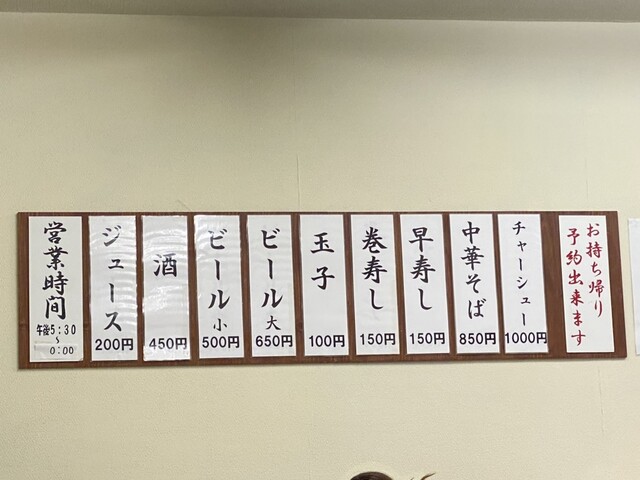 お持ち帰り
予約出来ます
チャーシュー
1000円
中華そば
850円
早寿し
150円
巻寿し
150円
玉子
100円
ビール大
650円
ビール小
500円
酒
450円
ジュース
200円
営業時間
午後5:30
~
0:00